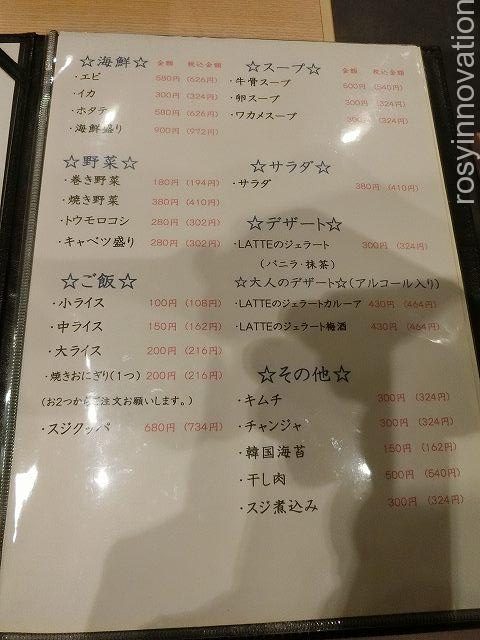 ☆海鮮☆ 金額 税込金額
・エビ 580円 (626円)
・イカ 300円 (324円)
・ホタテ 580円 (626円)
・海鮮盛り 900円 (972円)
☆野菜☆
・巻き野菜 180円 (194円)
・焼き野菜 380円 (410円)
・トウモロコシ 280円 (302円)
・キャベツ盛り 280円 (302円)
☆ご飯☆
・小ライス 100円 (108円)
・中ライス 150円 (162円)
・大ライス 200円 (216円)
・焼きおにぎり(1つ) 200円 (216円)
(お2つからご注文お願いします。)
・スジクッパ 680円 (734円)
☆スープ☆ 金額 税込金額
・牛骨スープ 500円 (540円)
・卵スープ 300円 (324円)
・ワカメスープ 300円 (324円)
☆サラダ☆
・サラダ 380円 (410円)
☆デザート☆
・LATTEのジェラート 300円 (324円)
(バニラ・抹茶)
☆大人のデザート☆(アルコール入り)
・LATTEのジェラートカルーア 430円 (464円)
・LATTEのジェラート梅酒 430円 (464円)
☆その他☆
・キムチ 300円 (324円)
・チャンジャ 300円 (324円)
・韓国海苔 150円 (162円)
・干し肉 500円 (540円)
・スジ煮込み 300円 (324円)
rosyinnovation